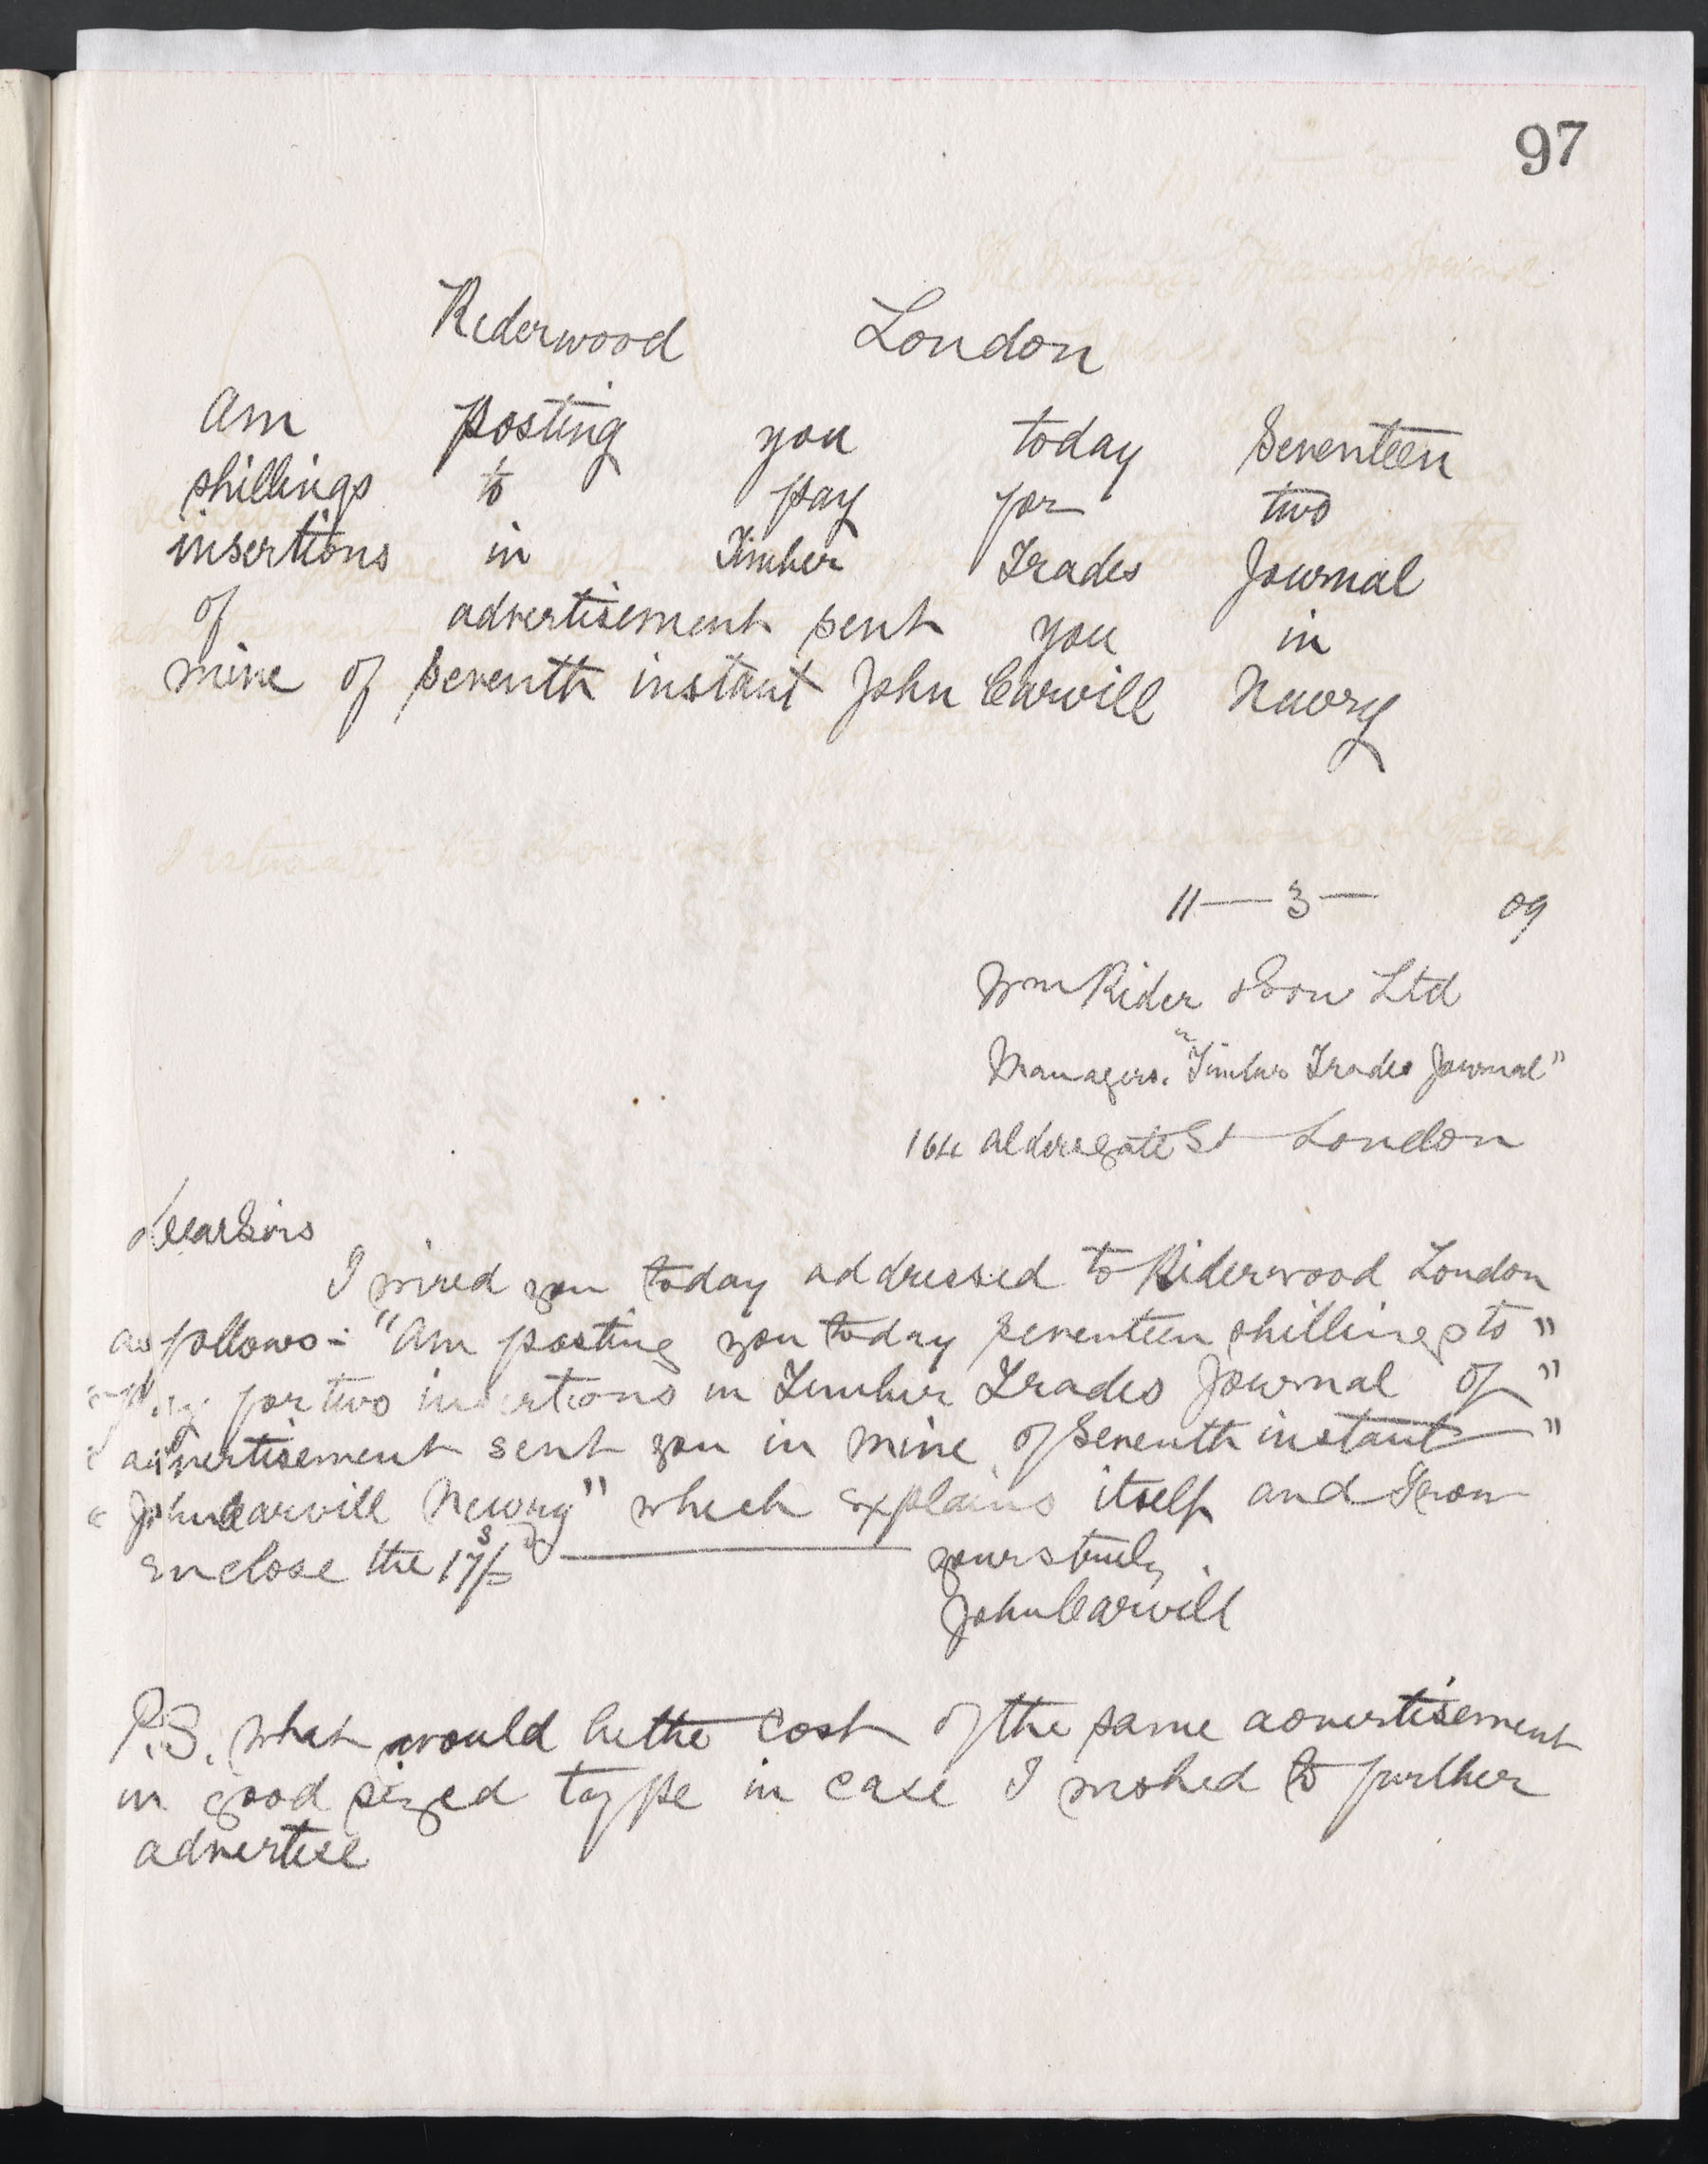 97
Riderwood London
Am posting you today Seventeen
shillings to pay for two
insertions in Timber Trades Journal
of advertisement sent you in
mine of seventh instant John Carvill Newry
11 — 3 — 09
Wm Rider & Son Ltd
Managers. "Timber Trades Journal"
164 Aldersgate St London
Dear Sirs
I wired you today addressed to Riderwood London
as follows:- "Am posting you today seventeen shillings to"
"pay for two insertions in Timber Trades Journal of"
"advertisement sent you in mine of Seventh instant"
"John Carvill Newry" which explains itself and I now
enclose the 17s/=
yours truly
John Carvill
P.S. What would be the cost of the same advertisement
in good sized type in case I wished to further
advertise